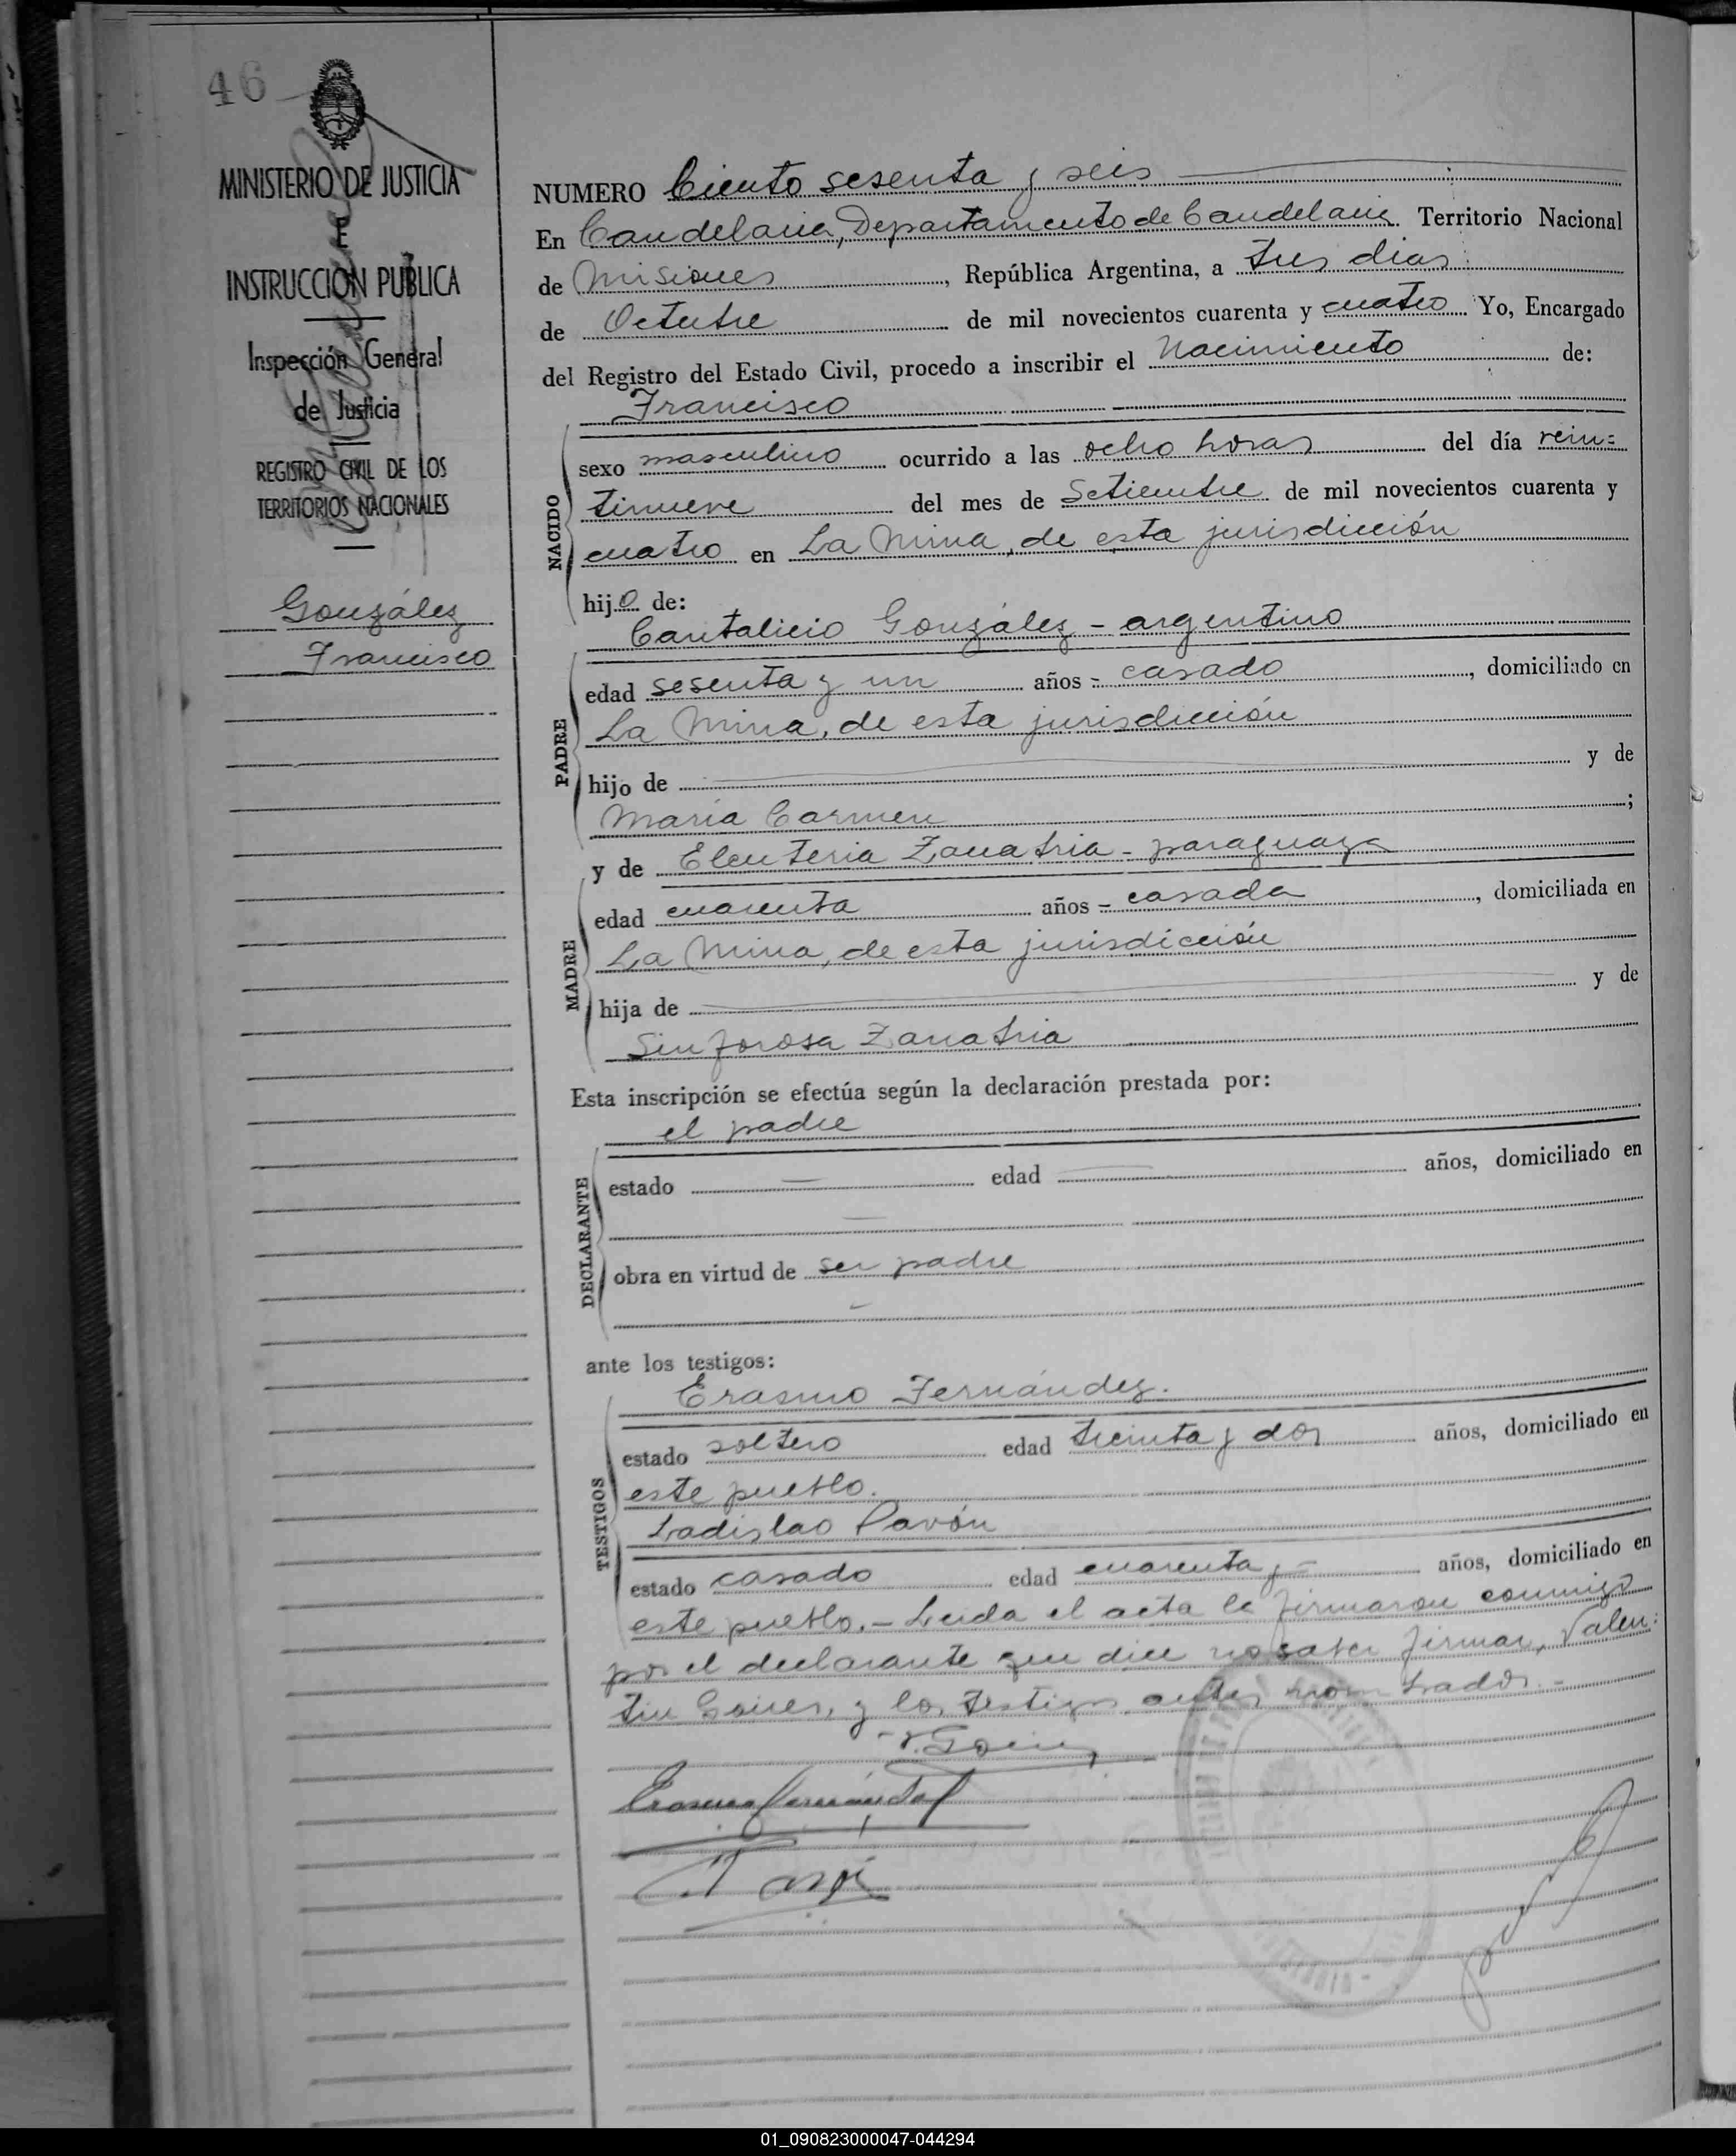 46
MINISTERIO DE JUSTICIA
E
INSTRUCCION PUBLICA
Inspección General
de Justicia
REGISTRO CIVIL DE LOS
TERRITORIOS NACIONALES
González
Francisco
NUMERO Ciento sesenta y seis
En Candelaria, Departamento de Candelaria Territorio Nacional
de Misiones, República Argentina, a tres dias
de Octubre de mil novecientos cuarenta y cuatro Yo, Encargado
del Registro del Estado Civil, procedo a inscribir el Nacimiento de:
Francisco
NACIDO
sexo masculino ocurrido a las ocho horas del día vein=
tinueve del mes de Setiembre de mil novecientos cuarenta y
cuatro en La Mina, de esta jurisdicción
hijo de:
Cantalicio González - argentino
PADRE
edad sesenta y un años - casado, domiciliado en
La Mina, de esta jurisdicción
hijo de y de
María Carmen ;
y de Eleuteria Zanabria - paraguaya
MADRE
edad cuarenta años - casada, domiciliada en
La Mina, de esta jurisdicción
hija de y de
Sinforosa Zanabria
Esta inscripción se efectúa según la declaración prestada por:
el padre
DECLARANTE
estado — edad — años, domiciliado en
obra en virtud de ser padre
ante los testigos:
Erasmo Fernández.
TESTIGOS
estado soltero edad treinta y dos años, domiciliado en
este pueblo.
Ladislao Pavón
estado casado edad cuarenta y - años, domiciliado en
este pueblo. - Leida el acta la firmaron conmigo
por el declarante que dice no saber firmar, Valen=
tin Goires, y los testigos antes nombrados. -
01_090823000047-044294